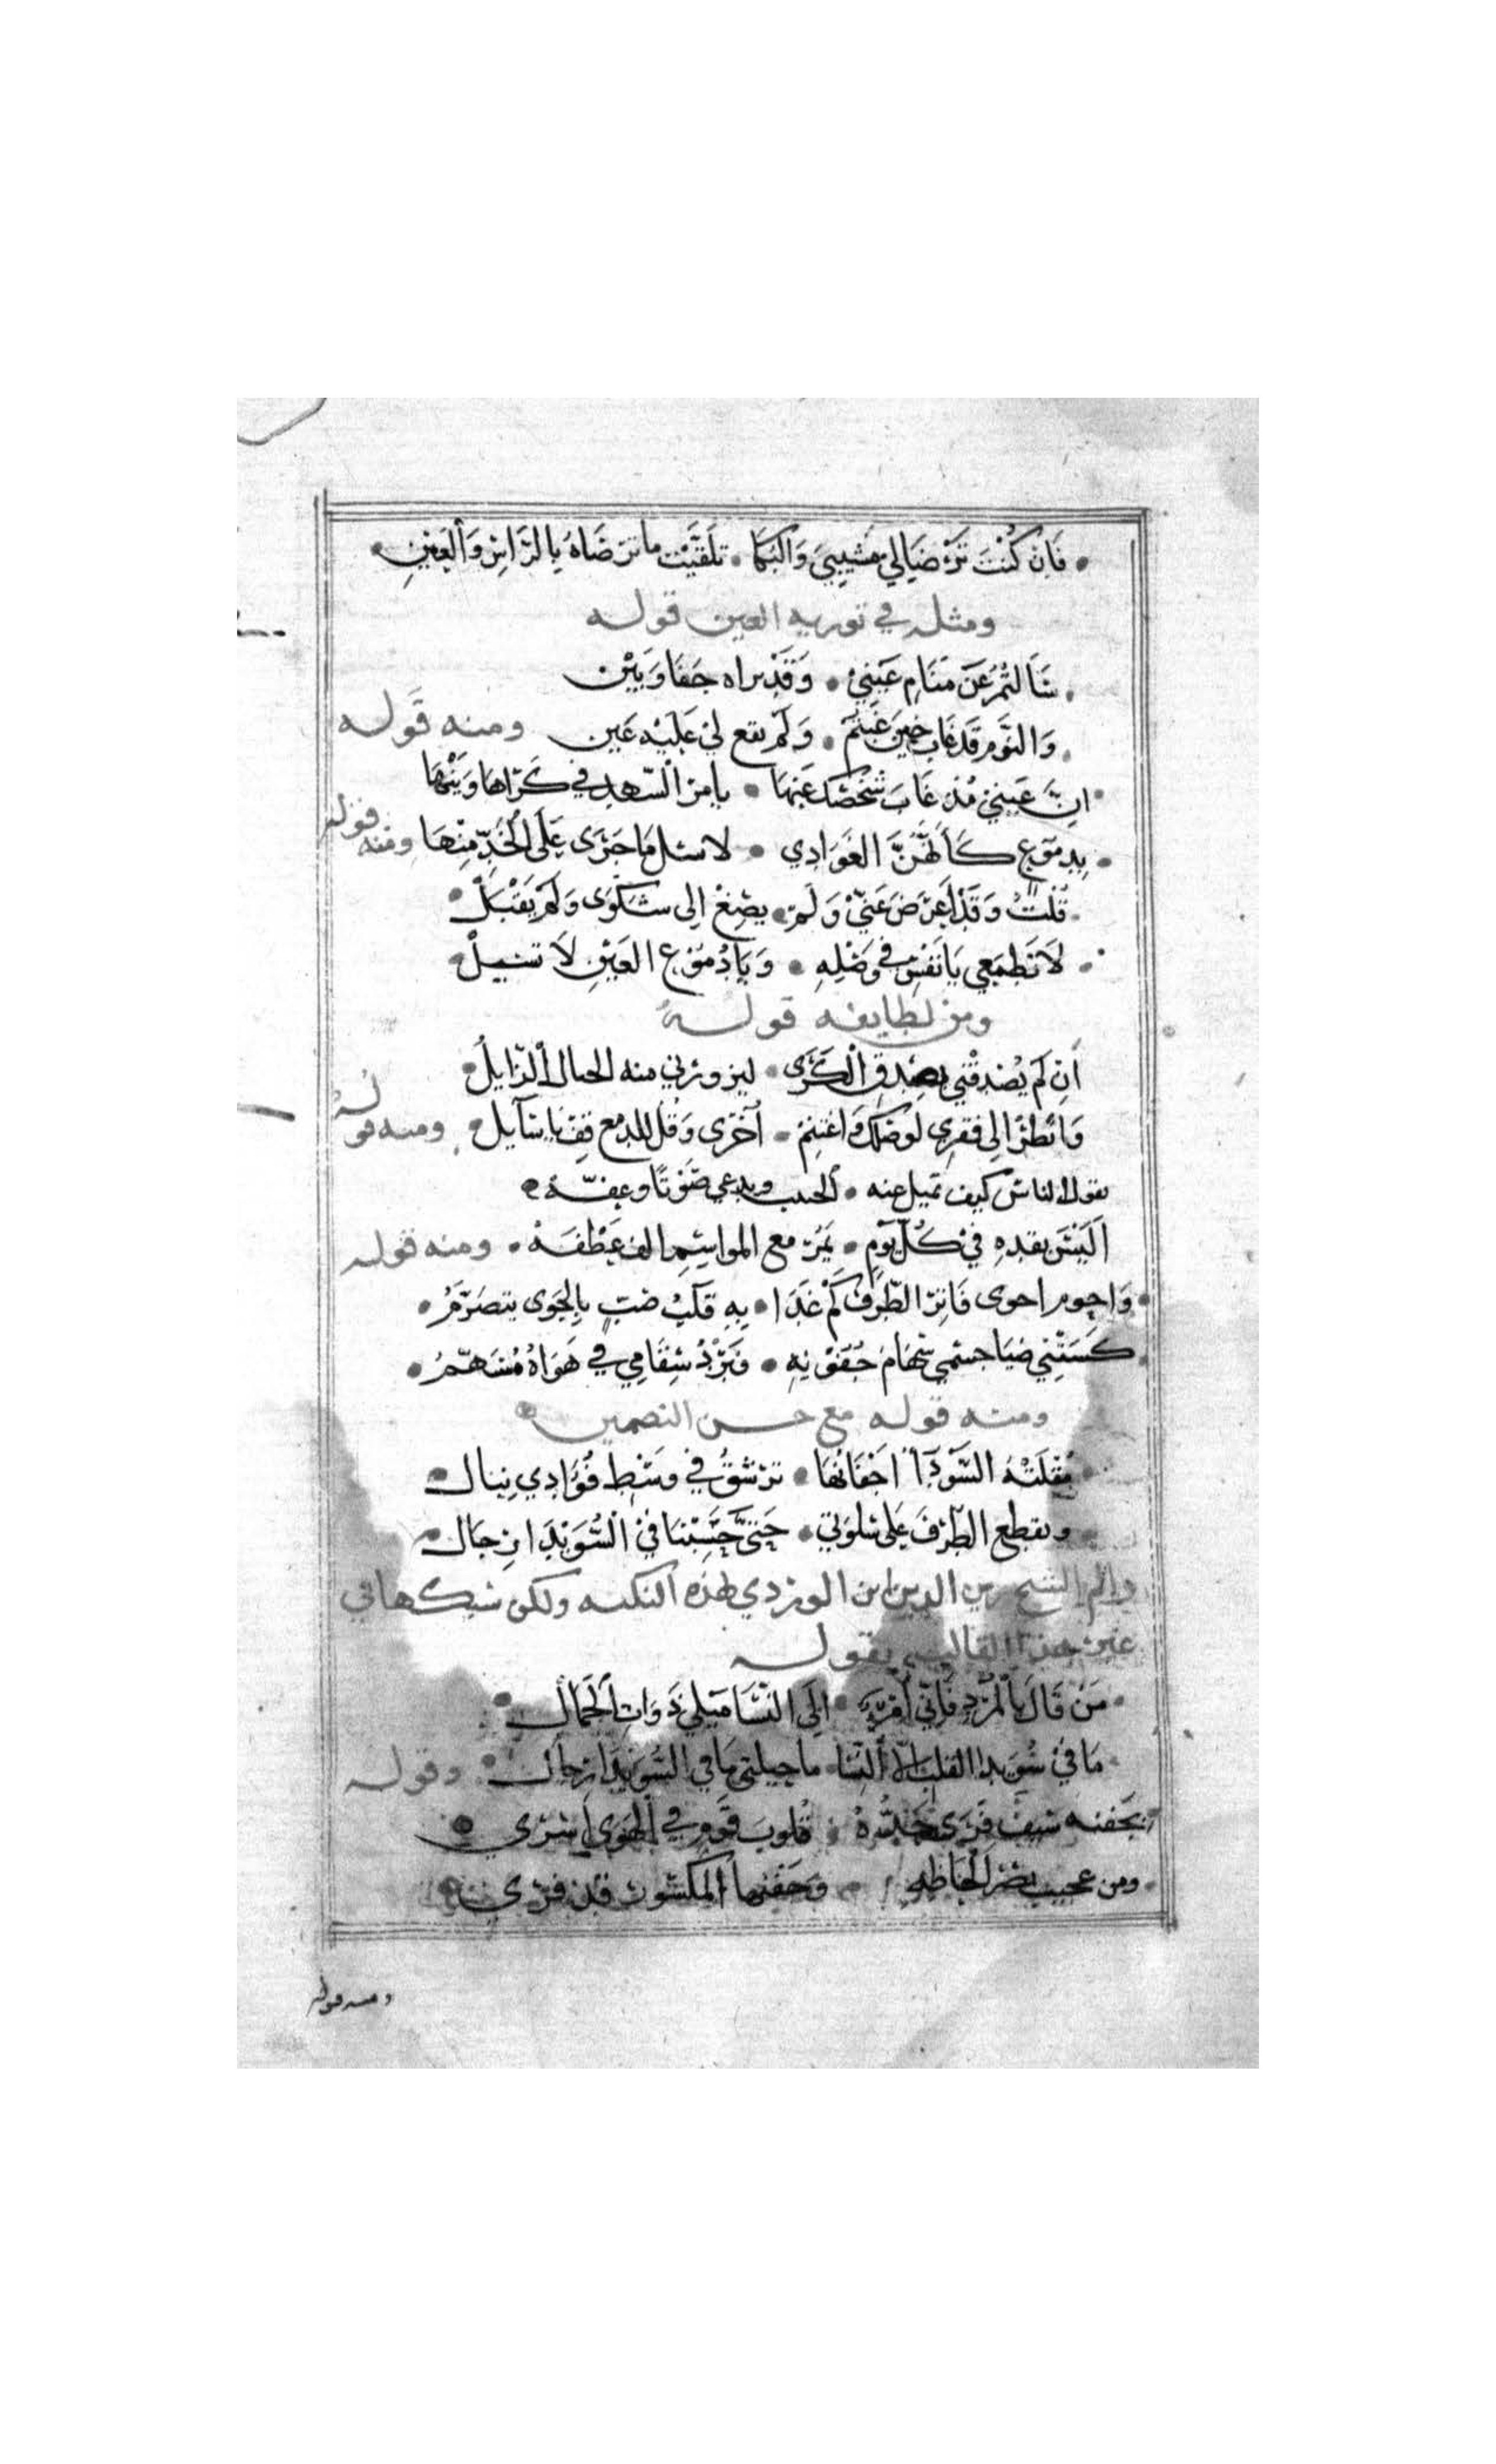 فَإِنْ كُنْتَ تَرْضَيَا لِي مَشِيبِيَ وَالبُكَا • تَلَقَّيْتُ مَا تَرْضَاهُ بِالرَّاسِ وَالعَيْنِ •
ومثله في تورية العين قوله
سَأَلْتُمُ عَنْ مَنَامِ عَيْنِي • وَقَدْ بَرَاهُ جَفَا وَبَيْن
وَالنَّوم قَد غَاب حِينَ غِبْتُم • وَلَمْ يَقع لِي عَلَيْه عَين ومنه قوله
انَّ عَيْنِي مُذ غَابَ شَخْصُكَ عَنْهَا • يأمر السّهد في كَرَاهَا وَيَنْهَا
• بِدمُوعٍ كَأَنَّهُنَّ الغَوَادِي • لا تسل مَا جَرَى عَلَى الخَدِّ مِنْهَا ومنه قوله
قُلْتُ وَقَدْ أَعْرَضَ عَنِّي وَلَمْ • يصْغ إلى شَكْوَى وَلَمْ يَقْبَلْ •
لَا تَطْمَعِي يَا نَفْسُ فِي وَصْلِهِ • وَيَا دُمُوعَ العَيْنِ لَا تَسَلْ
ومن لطايفه قوله
انْ لَمْ يُصَدِّقْنِي بصدق الكَرَى • ليزورني منه الخيال الزَّايلُ •
وَانْظُرْ إِلَى فقْرِي لوصلك وَاغتنِم • أَجْرِي وَقُل للدمع قِفْ يَا سَايل • ومنه قوله
يقول الناس كيف تميل عنه • الحبيب ويدعي صَوْنًا وعِفّه
أَلَيْسَ بقده فِي كُلِّ يَوْمٍ • يَمُرّ مع المواسِم الف عَطْفَهْ • ومنه قوله
• وَاحوم احوى فَاتِر الطّرْف كَمْ غَدَا • بِهِ قَلْبُ صَبٍّ بِالجَوى يتصَرَّمُ •
كَسَتْنِي ضَنَا جسْمي سِهَام جُفُوْنِهِ • فَبُرْدُ سِقَامِي فِي هَوَاهُ مُسَهَّمُ •
ومنه قوله مع حسن التضمين
مُقْلَتُهُ السَّوْدَآءُ أَجْفَانُهَا • تَرْشُقُ فِي وَسْطِ فُؤَادِي نِبَال
وتقطع الطُّرْقَ عَلَى سَلْوَتِي • حَتَّى حَسِبْنَا فِي السُّوَيْدَا رِجَال
والم الشيخ زين الدين ابن الوردي بهذه النكته ولكن سبكها في
غير هذا القالب بقوله
• مَنْ قَالَ بِالمُرْدِ فَإِنِّي امْرُؤٌ • إلَى النِّسَا مَيْلِي ذَوَاتِ الجَمَال
مَا فِي سُوَيْدَا القلب الا النِّسَا • ما حيلتي مَا في السُّوَيْدَا رِجَال • وقوله
بجفنه سَيْفٌ فَرَى حَدُّهُ • قُلُوبَ قَوْمٍ فِي الهَوَى أَسْرَى
• ومن عجيب نَصْرُ الحَاظه • وَجَفْنها المَكْسُور قد فَرَى
ومنه قوله